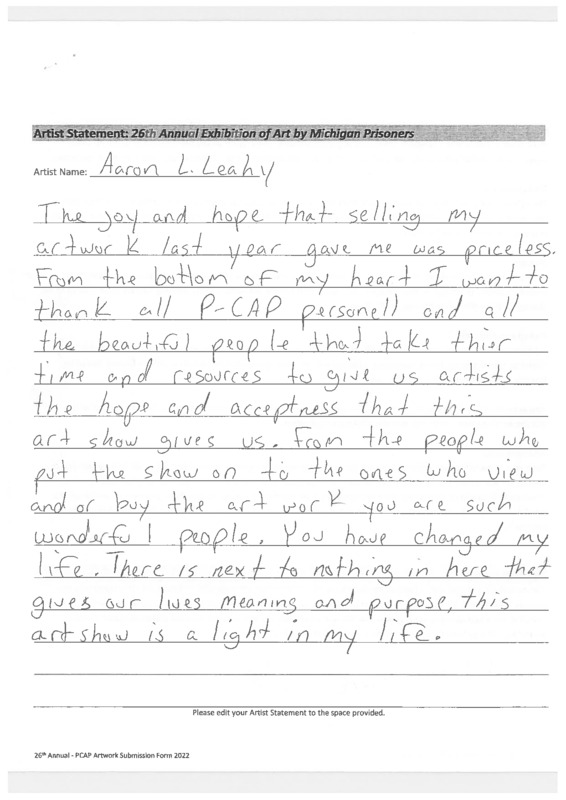 Artist Statement: 26th Annual Exhibition of Art by Michigan Prisoners
Artist Name: Aaron L. Leahy
The joy and hope that selling my
artwork last year gave me was priceless.
From the bottom of my heart I want to
thank all P-CAP personell and all
the beautiful people that take thier
time and resources to give us artists
the hope and acceptness that this
art show gives us. From the people who
put the show on to the ones who view
and or buy the art work you are such
wonderful people. You have changed my
life. There is next to nothing in here that
gives our lives meaning and purpose, this
art show is a light in my life.
Please edit your Artist Statement to the space provided.
26th Annual - PCAP Artwork Submission Form 2022